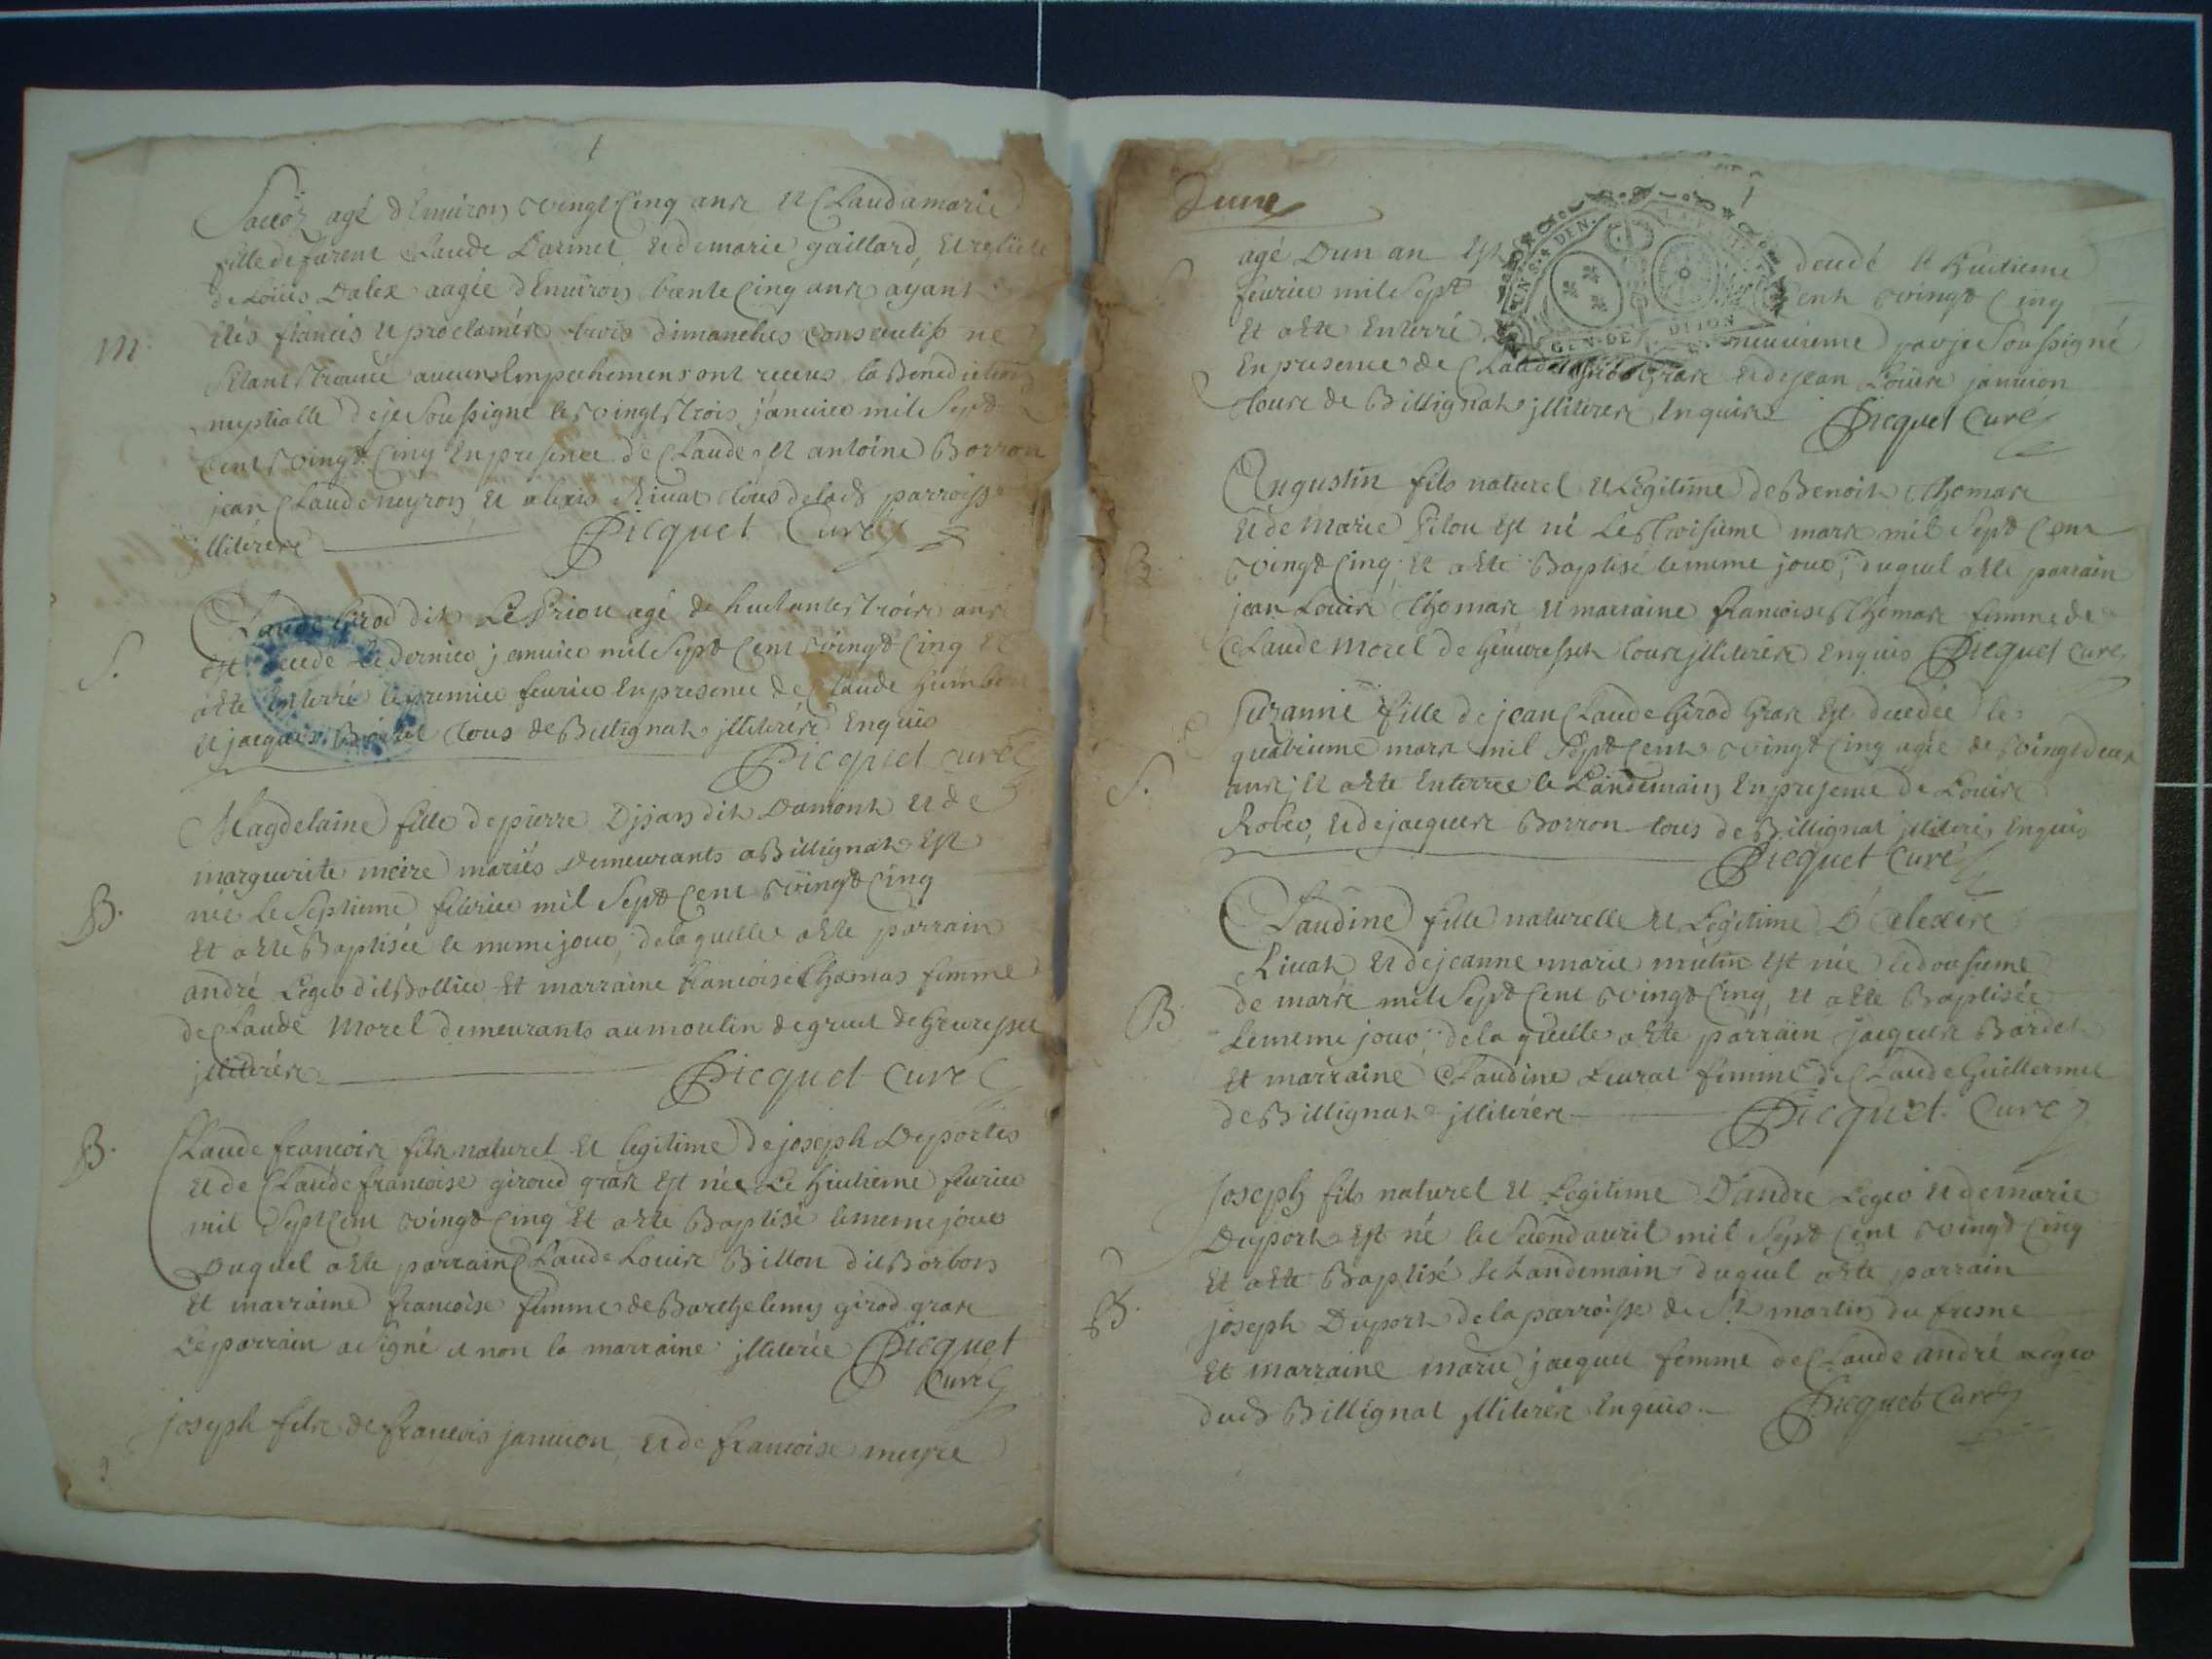 agé d'Environ Vingt Cinq ans et Claudamarie
fille de furent Claude Darmet, et de marie gaillard, et relicte
de Loüis Dalex aagée d'Environ trente Cinq ans ayant
étés fiancés et proclamés trois dimanches Consecutifs ne
M.
S'étant trouvé aucuns Empechemens ont receus la Benediction
nuptialle de je Soussigné le Vingt trois janvier mil Sept
Cent Vingt Cinq En presence de Claude et antoine Borron
jean Claude neyron et alexis Rivat tous de lad. parroisse
illiterés Picquet Curé
Claude Girod dit Le Priou agé de huitante trois ans
est decedé Le dernier janvier mil Sept Cent Vingt Cinq et
S.
a été Enterré le premier fevrier En presence de Claude Humbert
et jacques tous de Billignat illiterés Enquis
Picquet Curé
Magdelaine fille de pierre Dijan dit Damont et de
marguerite meire mariés Demeurants a Billignat Est
née Le Septieme février mil Sept Cent Vingt Cinq
B.
Et a été Baptisée le meme jour, de laquelle a été parrain
andré Leger dit Bollier Et marraine francoise Thomas femme
de Claude Morel demeurants au moulin de
illiterés Picquet Curé
B.
Claude francois fils naturel Et legitime de joseph Deportes
et de Claude francoise giroud gras Est née Le huitieme fevrier
mil Sept Cent Vingt Cinq Et a été Baptisé le meme jour
Duquel a été parrain Claude Louis Billon dit Borbon
Et marraine francoise femme de Barthelemy girod gras
Le parrain a Signé et non la marraine illiterée Picquet
Curé
joseph fils de francois janvion, et de francoise meyre
agé Dun an Est decedé le Huitieme
fevrier mil Sept Cent Vingt Cinq
Et a été Enterré neuvieme par je Soussigné
GEN. DE DIJON
En presence de Claude Girod Gras et de jean Louis janvion
tous de Billignat illiterés Enquis Picquet Curé
Augustin fils naturel et Legitime de Benoit Thomas
et de Marie Pilou Est né Le troisieme mars mil Sept Cent
B.
Vingt Cinq, Et a été Baptisé le meme jour, duquel a été parrain
jean Louis Thomas et marraine francoise Thomas femme de
Claude Morel de tous illiterés Enquis Picquet Curé
Suzanne fille de jean Claude Girod Gras Est decedée le
quatrieme mars mil Sept Cent Vingt Cinq agée de Vingt deux
S.
ans, Et a été Enterrée le Landemain En presence de Louis
et de jacques Borron tous de Billignat illiterés Enquis
Picquet Curé
Claudine fille naturelle et Legitime D'alexis
Rivat et de jeanne marie mutin Est née le dousieme
de mars mil Sept Cent Vingt Cinq, et a été Baptisée
B.
Le meme jour, de laquelle a été parrain jacques Bardet
Et marraine Claudine Levrat femme de Claude Guillermet
de Billignat illiterés Picquet Curé
Joseph fils naturel et Legitime D'andré Leger et de marie
Duport Est né le Second avril mil Sept Cent Vingt Cinq
Et a été Baptisé le Landemain duquel a été parrain
B.
joseph Duport de la parroisse de St martin du fresne
Et marraine marie jacquet femme de Claude andré Leger
dud. Billignat illiterés Enquis Picquet Curé